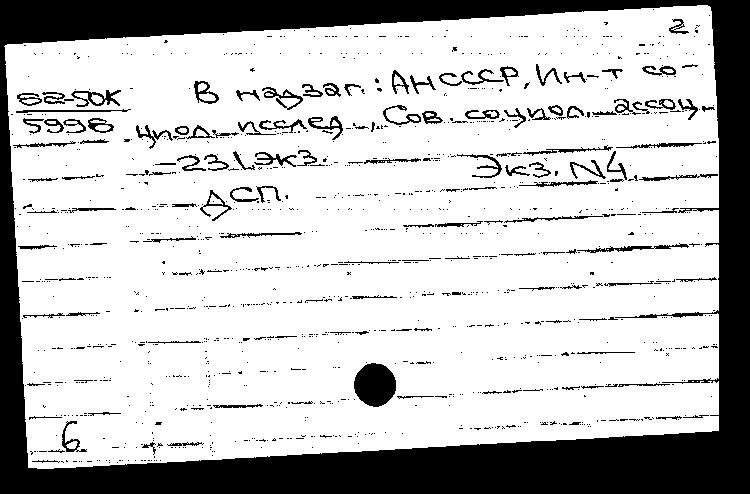 2.
В надзаг.: АН СССР, Ин-т со-
68-50К
5996
циол. исслед., Сов. социол. ассоц.
-231 экз.
Экз. N4.
ДСП.
6